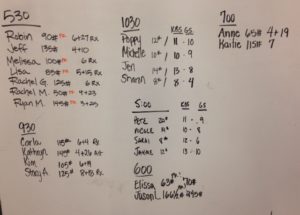 530
Robin 90# PR 6+27 RX
Jeff 135# 4+10
Melissa 100# PR 6 RX
Lisa 85# PR 5+15 RX
Rachel G. 125# 6 RX
Rachel M. 50# PR 4+23
Ryan M. 145# PR 3+25
930
Carla 115# 6+4 RX
Kathryn 145# 4+26 RX
Kim 105# 6+9
Stacy 125# 8+15 RX
1030
KBS GS
Poppy 12# / 11 - 10
Michelle 10# / 9 - 10
Jen 14# / 13 - 8
Sharon 8# / 8 - 4
5:00 KBS GS
Pete 20# 11 - 9
Nicole 10 - 8
Sarai 8# 12 - 6
Janine 12# 13 - 10
600
Elissa 63# 70#
Jason L.
700
Anne 65# 4+19
Kaitie 115# 7